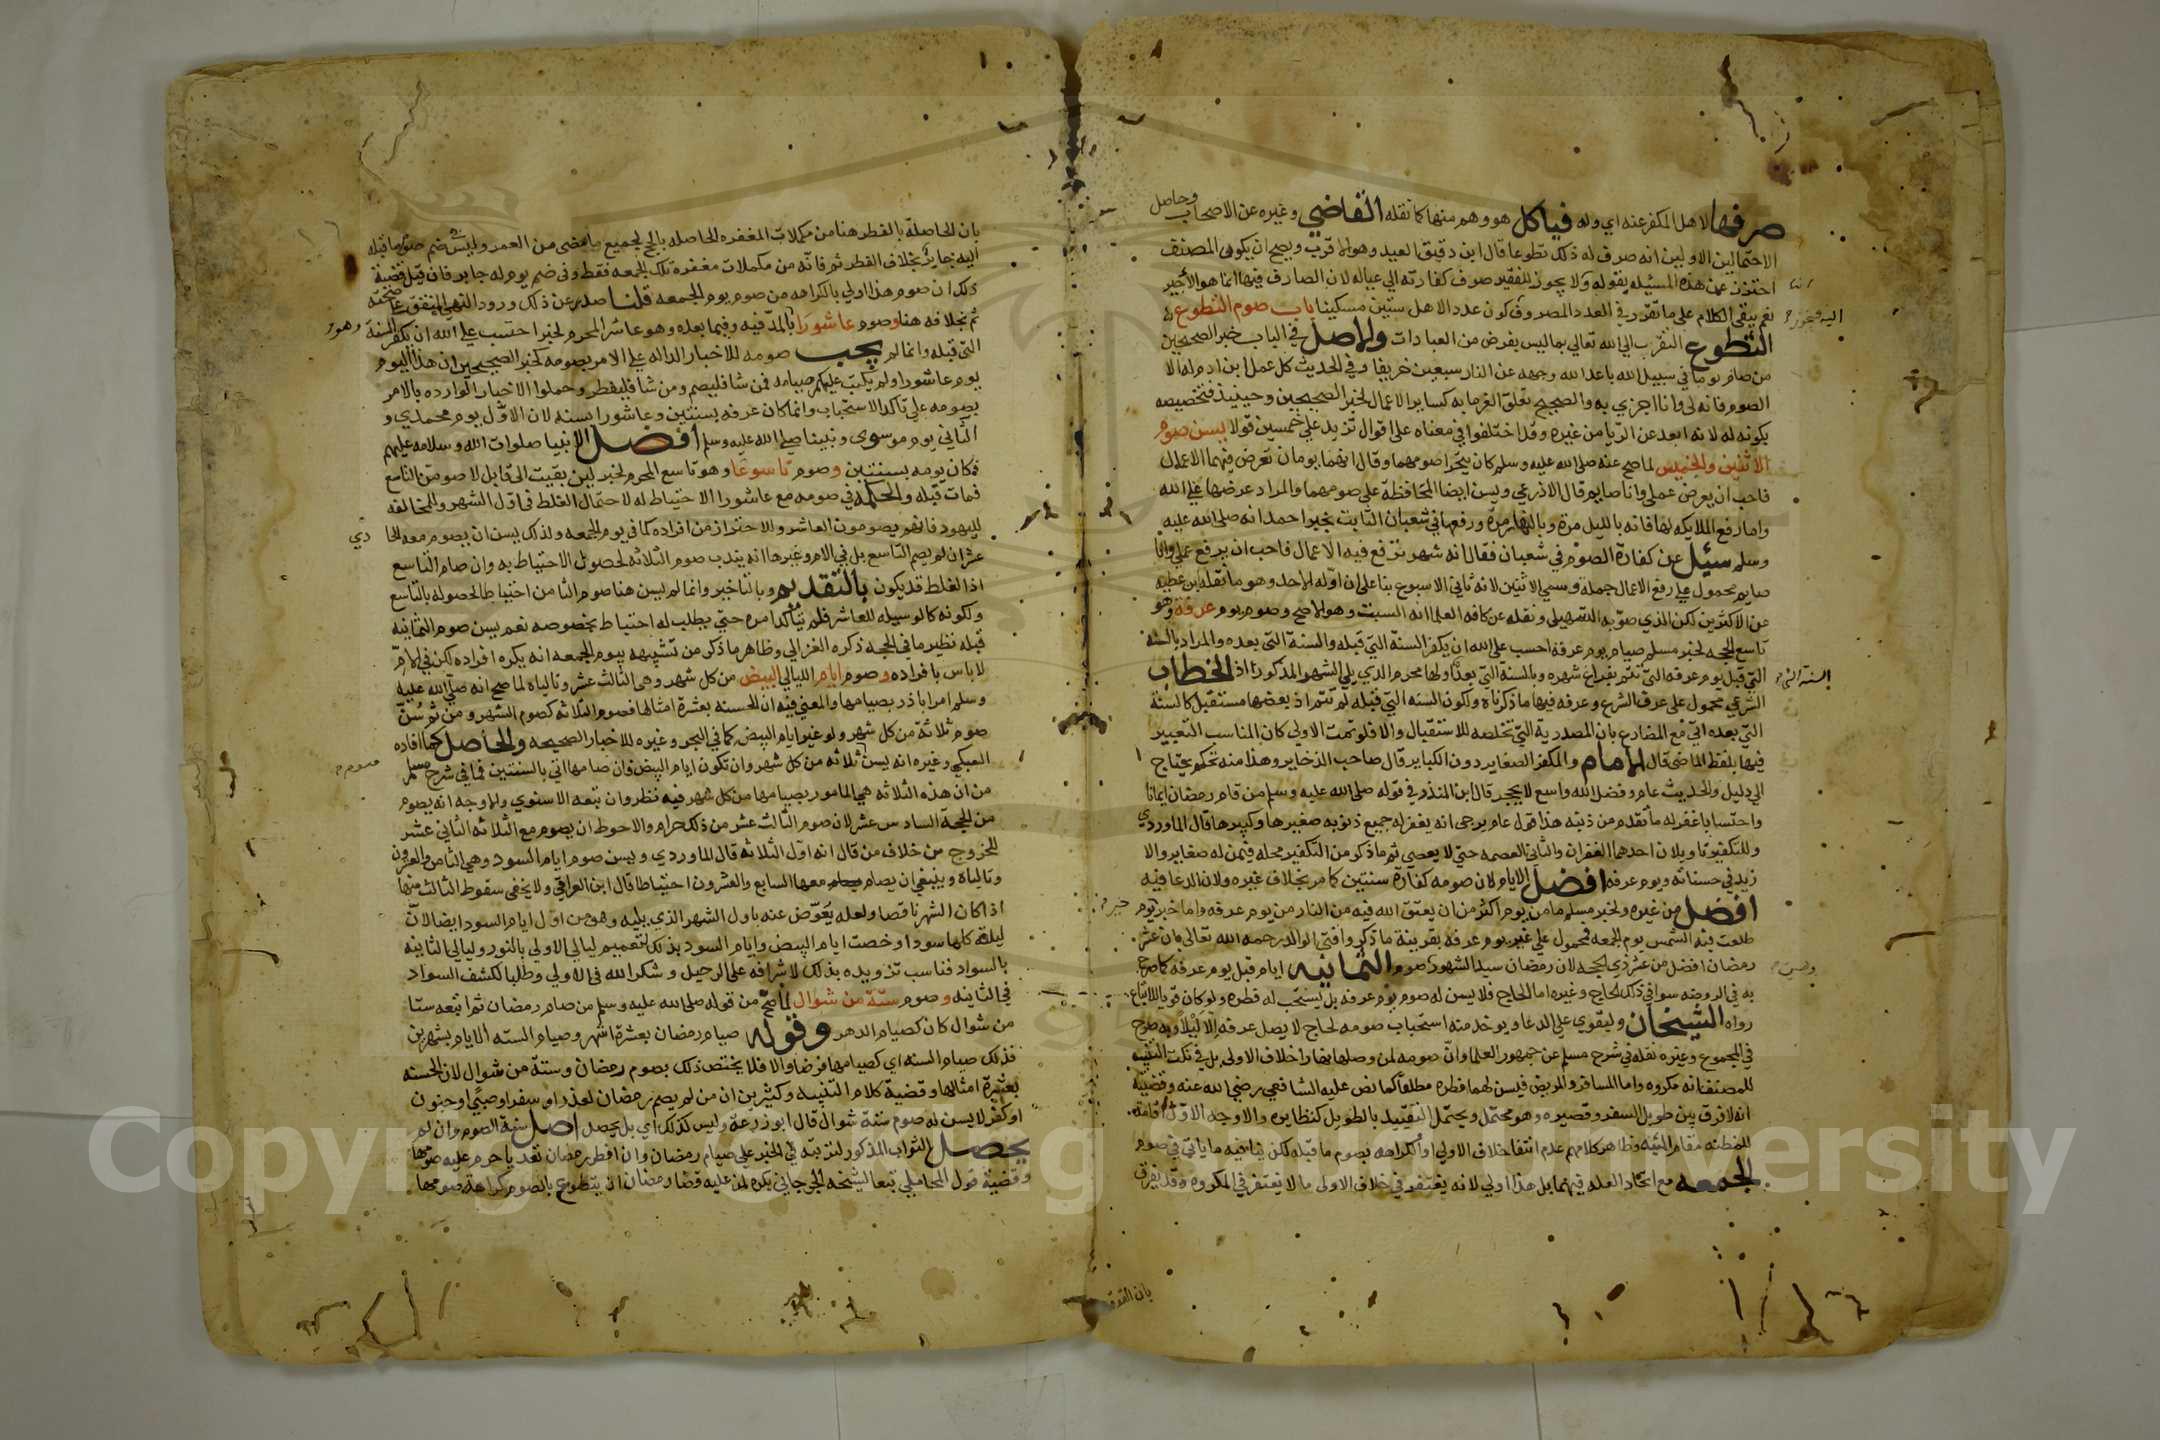 صرفها لاهل المكفر عنه اي وله فياكل هو وهم منها كما نقله القاضي وغيره عن الاصحاب وحاصل
الاحتمالين الاولين انه صرف له ذلك تطوعا قال ابن دقيق العيد وهو الاقرب ويصح ان يكون المصنف
احترز عن هذه المسئله بقوله ولا يجوز للفقير صرف كفارته الي عياله لان الصارف فيها انما هو الاجنبي
نعم يبقي الكلام علي ما تقرر في العدد المصروف كون عدد الاهل ستين مسكينا باب صوم التطوع
التطوع التقرب الي الله تعالي بما ليس بفرض من العبادات والاصل في الباب خبر الصحيحين
من صام يوما في سبيل الله باعد الله وجهه عن النار سبعين خريفا وفي الحديث كل عمل ابن ادم له الا
الصوم فانه لي وانا اجزي به والصحيح تعلق الغرما به كساير الاعمال لخبر الصحيحين وحينيذ فتخصيصه
بكونه له لانه ابعد عن الريا من غيره وقد اختلفوا في معناه علي اقوال تزيد علي خمسين قولا يسن صوم
الاثنين والخميس لما صح عنه صلي الله عليه وسلم كان يتحرا صومهما وقال انهما يومان تعرض فيهما الاعمال
فاحب ان يعرض عملي وانا صايم قال الاذرعي ويسن ايضا المحافظة علي صومهما والمراد عرضها علي الله
واما رفع الملايكه لها فانه بالليل مرة وبالنهار مرة ورفعها في شعبان الثابت بخبر احمد انه صلي الله عليه
وسلم سئيل عن كفارة الصوم في شعبان فقال انه شهر ترفع فيه الاعمال فاحب ان يرفع عملي وانا
صايم محمول علي رفع الاعمال جملة وسمي الاثنين لانه ثاني الاسبوع بنا علي ان اوله الاحد وهو ما نقله ابن عطيه
عن الاكثرين لكن الذي صوبه السهيلي ونقله عن كافه العلما انه السبت وهو الاصح وصوم يوم عرفة وهو
تاسع الحجه لخبر مسلم صيام يوم عرفة احسب علي الله ان يكفر السنة التي قبله والسنة التي بعده والمراد بالسنة
التي قبل يوم عرفه التي تتم بفراغ شهره وبالسنة التي بعد اولها محرم الذي يلي الشهر المذكور اذ الخطاب
السنة التي
الشرعي محمول علي عرف الشرع وعرفه فيها ما ذكرناه ولكون السنه التي قبله لم تتم اذ بعضها مستقبل كالسنة
التي بعده اتي مع المضارع بان المصدرية التي تخلصه للاستقبال والا فلو تمت الاولي كان المناسب التعبير
فيها بلفظ الماضي قال الامام والمكفر الصغاير دون الكباير قال صاحب الذخاير وهذا منه تحكم يحتاج
الي دليل والحديث عام وفضل الله واسع لا يحجر قال ابن المنذر في قوله صلي الله عليه وسلم من قام رمضان ايمانا
واحتسابا غفر له ما تقدم من ذنبه هذا قول عام يرجي انه يغفر له جميع ذنوبه صغيرها وكبيرها قال الماوردي
وللتكفير تاويلان احدهما الغفران والثاني العصمه حتي لا يعصي ثم ما ذكر من التكفير محله فيمن له صغاير والا
زيد في حسناته ويوم عرفه افضل الايام لان صومه كفارة سنتين كما مر بخلاف غيره ولان الدعا فيه
افضل من غيره ولخبر مسلم ما من يوم اكثر من ان يعتق الله فيه من النار من يوم عرفه واما خبر يوم
طلعت فيه الشمس يوم الجمعه فمحمول علي غير يوم عرفه بقرينة ما ذكر وافتي الوالد رحمه الله تعالي بان عشر
رمضان افضل من عشر ذي الحجه لان رمضان سيد الشهور صوم الثمانيه ايام قبل يوم عرفه كما صرح
به في الروضه سوا في ذلك الحاج وغيره اما الحاج فلا يسن له صوم يوم عرفه بل يستحب له فطره ولو كان قويا للاتباع
رواه الشيخان وليقوي علي الدعا ويوخذ منه استحباب صومه لحاج لا يصل عرفه الا ليلا وبه صرح
في المجموع وغيره نقله في شرح مسلم عن جمهور العلما وان صومه لمن وصلها نهارا خلاف الاولي بل في نكت التنبيه
للمصنف انه مكروه واما المسافر والمريض فيسن لهما فطره مطلقا كما نص عليه الشافعي رضي الله عنه وقضيته
انه لا فرق بين طويل السفر وقصيره وهو محتمل ويحتمل التقييد بالطويل كنظايره والاوجه الاول اقامة
للمظنه مقام المئنه وظاهر كلامهم عدم انتفا خلاف الاولي او الكراهه بصوم ما قبله لكن ينافيه ما ياتي في صوم
الجمعه مع اتحاد العله فيهما بل هذا اولي لانه يغتفر في خلاف الاولي ما لا يغتفر في المكروه وقد يفرق
بان القوة
بان الحاصلة بالفطر هنا من مكملات المغفره الحاصله بالحج لجميع ما مضي من العمر وليس ضم صوم ما قبله
اليه جابر بخلاف الفطر ثم فانه من مكملات مغفره تلك الجمعه فقط وفي ضم يوم له جابر فان قيل قضية
ذلك ان صوم هذا اولي بالكراهه من صوم يوم الجمعه قلنا صدر عن ذلك ورود النهي المتفق علي صحته
ثم بخلافه هنا وصوم عاشورا بالمد فيه وفيما بعده وهو عاشر المحرم لخبر احتسب علي الله ان يكفر السنة
التي قبله وانما لم يجب صومه للاخبار الداله علي الامر بصومه لخبر الصحيحين ان هذا اليوم
يوم عاشورا ولم يكتب عليكم صيامه فمن شا فليصم ومن شا فليفطر وحملوا الاخبار الوارده بالامر
بصومه علي تاكد الاستحباب وانما كان عرفه بسنتين وعاشورا بسنه لان الاول يوم محمدي و
الثاني يوم موسوي ونبينا صلي الله عليه وسلم افضل الانبيا صلوات الله وسلامه عليهم
فكان يومه بسنتين وصوم تاسوعا وهو تاسع المحرم لخبر لين بقيت الي قابل لاصومن التاسع
فمات قبله والحكمه في صومه مع عاشورا الاحتياط له لاحتمال الغلط في اول الشهر والمخالفه
لليهود فانهم يصومون العاشر والاحتراز من افراده كما في يوم الجمعه ولذلك يسن ان يصوم معه الحا
دي
عشر ان لم يصم التاسع بل في الام وغيرها انه يندب صوم الثلاثه لحصول الاحتياط به وان صام التاسع
اذ الغلط قد يكون بالتقديم وبالتاخير وانما لم يسن هنا صوم الثامن احتياطا لحصوله بالتاسع
ولكونه كالوسيله للعاشر فلم يتاكد امره حتي يطلب له احتياط بخصوصه نعم يسن صوم الثمانيه
قبله نظير ما في الحجه ذكره الغزالي وظاهر ما ذكر من تشبيهه بيوم الجمعه انه يكره افراده لكن في الام
لا باس بافراده وصوم ايام الليالي البيض من كل شهر وهي الثالث عشر وتالياه لما صح انه صلي الله عليه
وسلم امر ابا ذر بصيامها والمعني فيه ان الحسنه بعشرة امثالها فصوم الثلاثه كصوم الشهر ومن ثم سن
صوم ثلاثة من كل شهر ولو غير ايام البيض كما في البحر وغيره للاخبار الصحيحه والحاصل كما افاده
السبكي وغيره انه يسن ثلاثه من كل شهر وان تكون ايام البيض فان صامها اتي بالسنتين فما في شرح مسلم
من ان هذه الثلاثه هي المامور بصيامها من كل شهر فيه نظر وان تبعه الاسنوي والاوجه انه يصوم
من الحجة السادس عشر لان صوم الثالث عشر من ذلك حرام والاحوط ان يصوم مع الثلاثه الثاني عشر
للخروج من خلاف من قال انه اول الثلاثه قال الماوردي ويسن صوم ايام السود وهي الثامن والعشرون
وتالياه وينبغي ان يصام معها السابع والعشرون احتياطا قال ابن العراقي ولا يخفي سقوط الثالث منها
اذا كان الشهر ناقصا ولعله يعوض عنه باول الشهر الذي يليه وهو من اول ايام السود ايضا لان
ليلته كلها سودا وخصت ايام البيض وايام السود بذلك لتعميم ليالي الاولي بالنور وليالي الثانيه
بالسواد فناسب تزويده بذلك لاشرافه علي الرحيل وشكرا لله في الاولي وطلبا لكشف السواد
في الثانيه وصوم ستة من شوال لما صح من قوله صلي الله عليه وسلم من صام رمضان ثم اتبعه ستا
من شوال كان كصيام الدهر وقوله صيام رمضان بعشرة اشهر وصيام الستة الايام بشهرين
فذلك صيام السنه اي كصيامها فرضا والا فلا يختص ذلك بصوم رمضان وستة من شوال لان الحسنه
بعشرة امثالها وقضية كلام التنبيه وكثيرين ان من لم يصم رمضان لعذر او سفر او صبي او جنون
او كفر لا يسن له صوم ستة شوال قال ابو زرعة وليس كذلك اي بل يحصل اصل سنة الصوم وان لم
يحصل الثواب المذكور لترتبه في الخبر علي صيام رمضان وان افطر رمضان تعديا حرم عليه صومها
وقضية قول المحاملي تبعا لشيخه الجرجاني يكره لمن عليه قضا رمضان ان يتطوع بالصوم كراهة صومها
Copyright © King Saud University